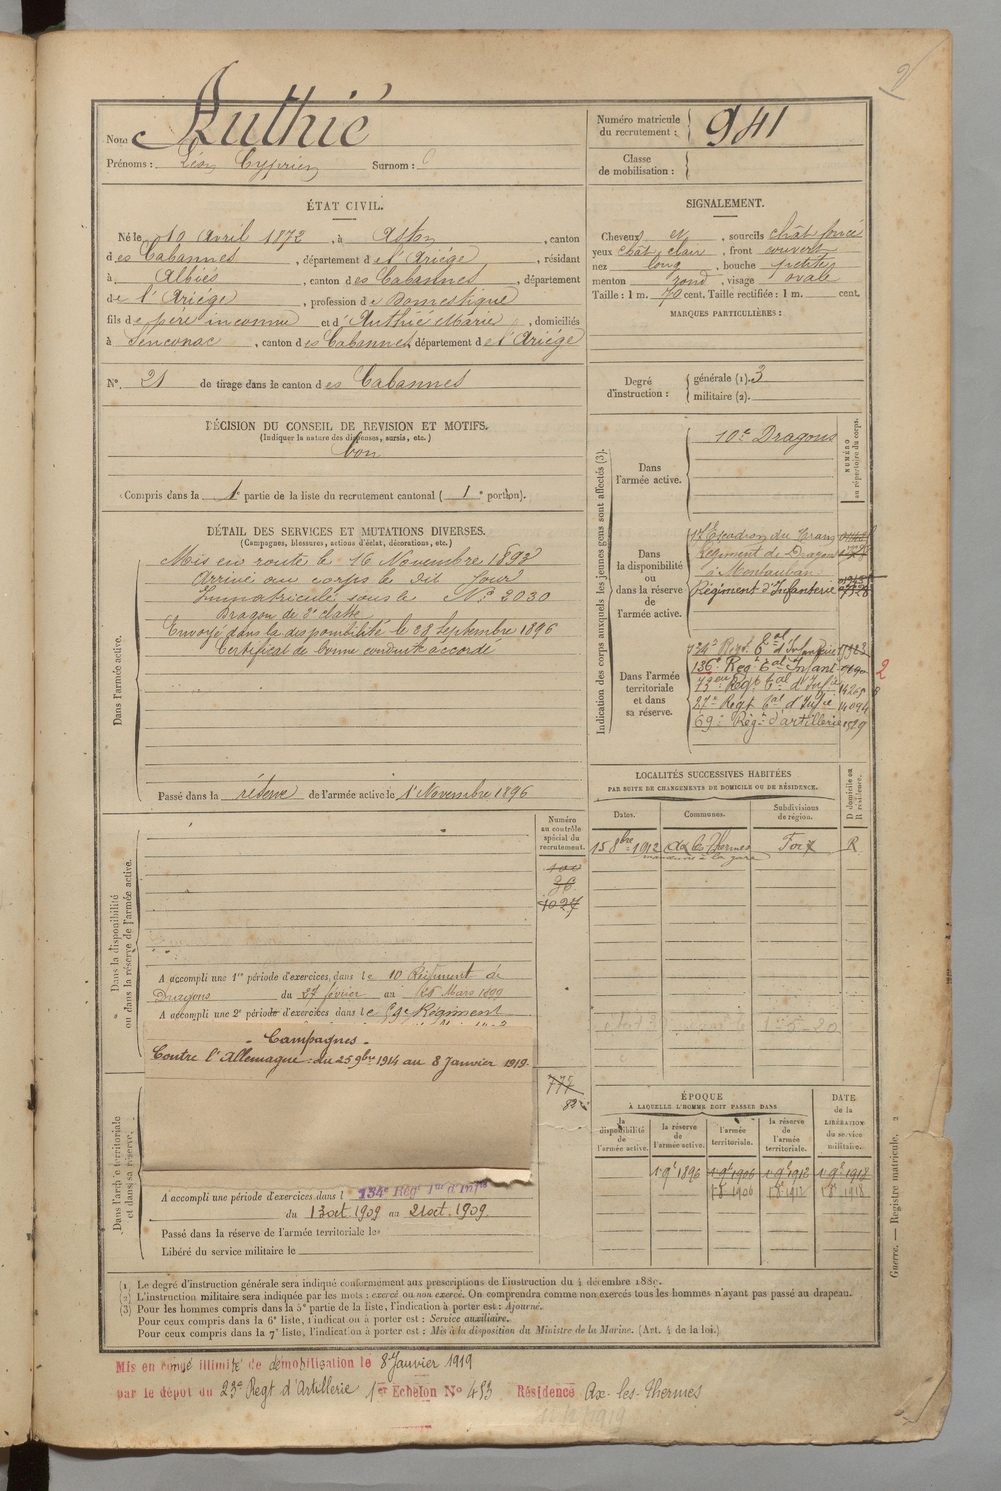 Nom Authié
Prénoms : Léon Cyprien Surnom :
Numéro matricule du recrutement : 941
Classe de mobilisation :
ÉTAT CIVIL.
Né le 10 Avril 1872, à Aston, canton
des Cabannes, département de l'Ariége, résidant
à Albiés, canton des Cabannes, département
de l'Ariége, profession de Domestique
fils de père inconnu et d'Authié Marie, domiciliés
à Senconac, canton des Cabannes, département de l'Ariége
N° 21 de tirage dans le canton des Cabannes
DÉCISION DU CONSEIL DE REVISION ET MOTIFS.
(Indiquer la nature des dispenses, sursis, etc.)
bon
Compris dans la 1e partie de la liste du recrutement cantonal (1e portion).
DÉTAIL DES SERVICES ET MUTATIONS DIVERSES.
(Campagnes, blessures, actions d'éclat, décorations, etc.)
Dans l'armée active.
Mis en route le 16 Novembre 1893
Arrivé au corps le dit jour
Immatriculé sous le N° 2030
Dragon de 2e classe
Envoyé dans la disponibilité le 28 Septembre 1896
Certificat de bonne conduite accordé
Passé dans la réserve de l'armée active le 1er Novembre 1896
Dans la disponibilité ou dans la réserve de l'armée active.
Numéro au contrôle spécial du recrutement.
1027
A accompli une 1re période d'exercices dans le 10 Régiment de
Dragons du 27 février au 26 Mars 1899
A accompli une 2e période d'exercices dans le Régiment
- Campagnes -
Contre l'Allemagne : du 25 9bre 1914 au 8 Janvier 1919.
Dans l'armée territoriale et dans sa réserve.
A accompli une période d'exercices dans l 134e Régt Trial d'Infie
du 13 oct 1909 au 21 oct. 1909.
Passé dans la réserve de l'armée territoriale le
Libéré du service militaire le
SIGNALEMENT.
Cheveux et, sourcils chât foncé
yeux chât clair, front couvert
nez long, bouche petite
menton rond, visage ovale
Taille : 1 m. 70 cent. Taille rectifiée : 1 m. cent.
MARQUES PARTICULIÈRES :
Degré d'instruction : générale (1). 3
militaire (2).
Indication des corps auxquels les jeunes gens sont affectés (3).
NUMÉRO au répertoire du corps.
Dans l'armée active.
10e Dragons
Dans la disponibilité ou dans la réserve de l'armée active.
Escadron du Train
Régiment de Dragons
à Montauban
Régiment d'Infanterie
Dans l'armée territoriale et dans sa réserve.
134e Régt tal d'Infanterie
136e Régt tal Infant
2
73eme Régt tal d'Infie
27e Régt tal d'Infie 14094
69e Régt d'artillerie 1529
LOCALITÉS SUCCESSIVES HABITÉES
PAR SUITE DE CHANGEMENTS DE DOMICILE OU DE RÉSIDENCE.
Dates. Communes. Subdivisions de région. D domicile ou R résidence.
15 8bre 1912 Ax les Thermes Foix R
ÉPOQUE
À LAQUELLE L'HOMME DOIT PASSER DANS
DATE de la LIBÉRATION du service militaire.
la disponibilité de l'armée active. la réserve de l'armée active. l'armée territoriale. la réserve de l'armée territoriale.
1 9e 1896 1 9e 1906 1 9e 1912 1 9e 1918
1906 1912 1918
Guerre. — Registre matricule. 2
(1) Le degré d'instruction générale sera indiqué conformément aux prescriptions de l'instruction du 4 décembre 1889.
(2) L'instruction militaire sera indiquée par les mots : exercé ou non exercé. On comprendra comme non exercés tous les hommes n'ayant pas passé au drapeau.
(3) Pour les hommes compris dans la 5e partie de la liste, l'indication à porter est : Ajourné.
Pour ceux compris dans la 6e liste, l'indication à porter est : Service auxiliaire.
Pour ceux compris dans la 7e liste, l'indication à porter est : Mis à la disposition du Ministre de la Marine. (Art. 4 de la loi.)
Mis en congé illimité de démobilisation le 8 Janvier 1919
par le dépot du 23e Regt d'Artillerie 1er Echelon N° 453 Résidence Ax-les-Thermes